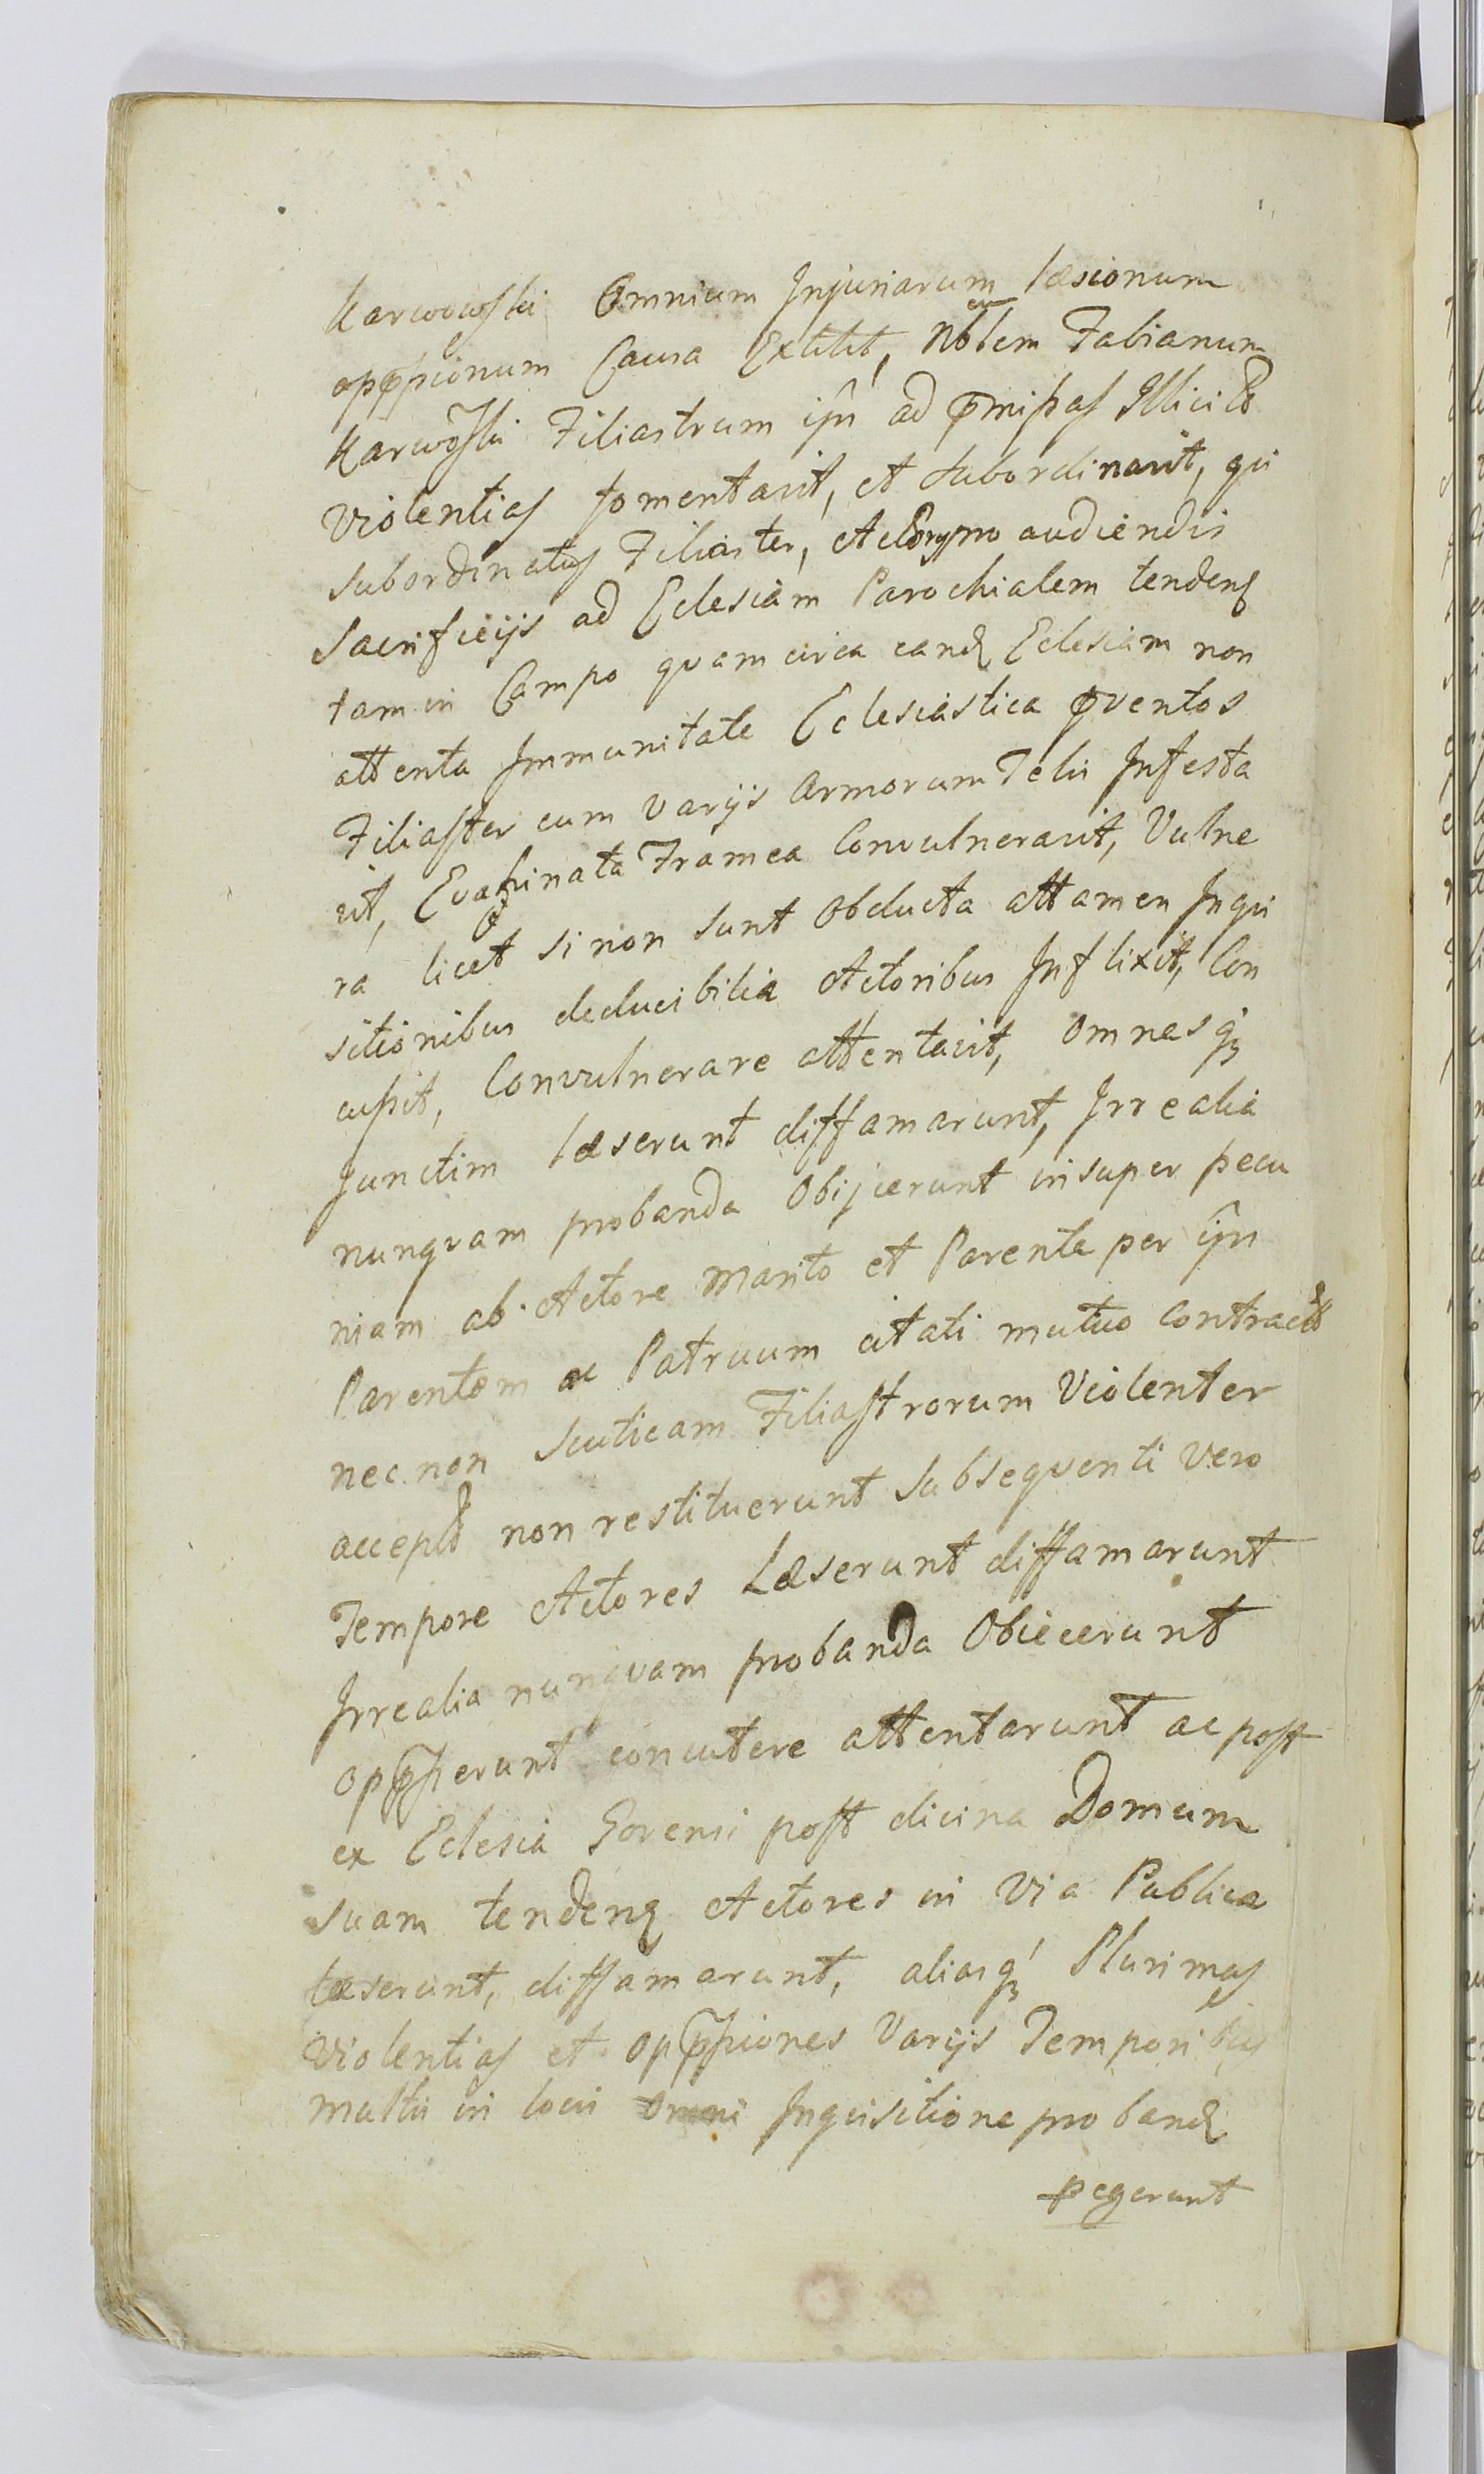 Karwowski Omnium Injuriarum læsionum
oppꝓsionum Causa Extitit, Nobłem Fabianum
Karwoski Filiastrum ipn̄ ad p̄missas Illicitas
violentias fomentavit, et subordinavit, qui
subordinatus Filiaster, Actores pro audiendis
Sacrificijs ad Eclesiam Parochialem tendentes
tam in Campo quam circa eand Eclesiam non
attenta Immunitate Eclesiastica p̄ventos
Filiaster cum varijs Armorum Telis Infesta
vit, Evaginata Framea Convulneravit, Vulne
ra licet si non sunt obducta attamen Inqui
sitionibus deducibilia Actoribus Inflixit, Con
cussit, Convulnerare attentavit, omnesq₃
Junctim læserunt diffamarunt, Irrealia
nunquam probanda Obijcerunt insuper pecu
niam ab Actore Marito et Parente per ipn̄
Parentem ac Patruum citati mutuo contractas
nec non scuticam Filiastrorum Violenter
acceptas non restituerunt Subsequenti Vero
Tempore Actores Læserunt diffamarunt
Irrealia nunquam probanda Obiecerunt
opp̄sserunt concutere attentarunt ac post
ex Eclesia Gorensi post divina Domum
suam tendentes Actores in Via Publica
læserunt, diffamarunt, aliasq₃ Plurimas
Violentias et opp̄ssiones Varijs Temporibus
multis in locis omni Inquisitione proband
pegerunt